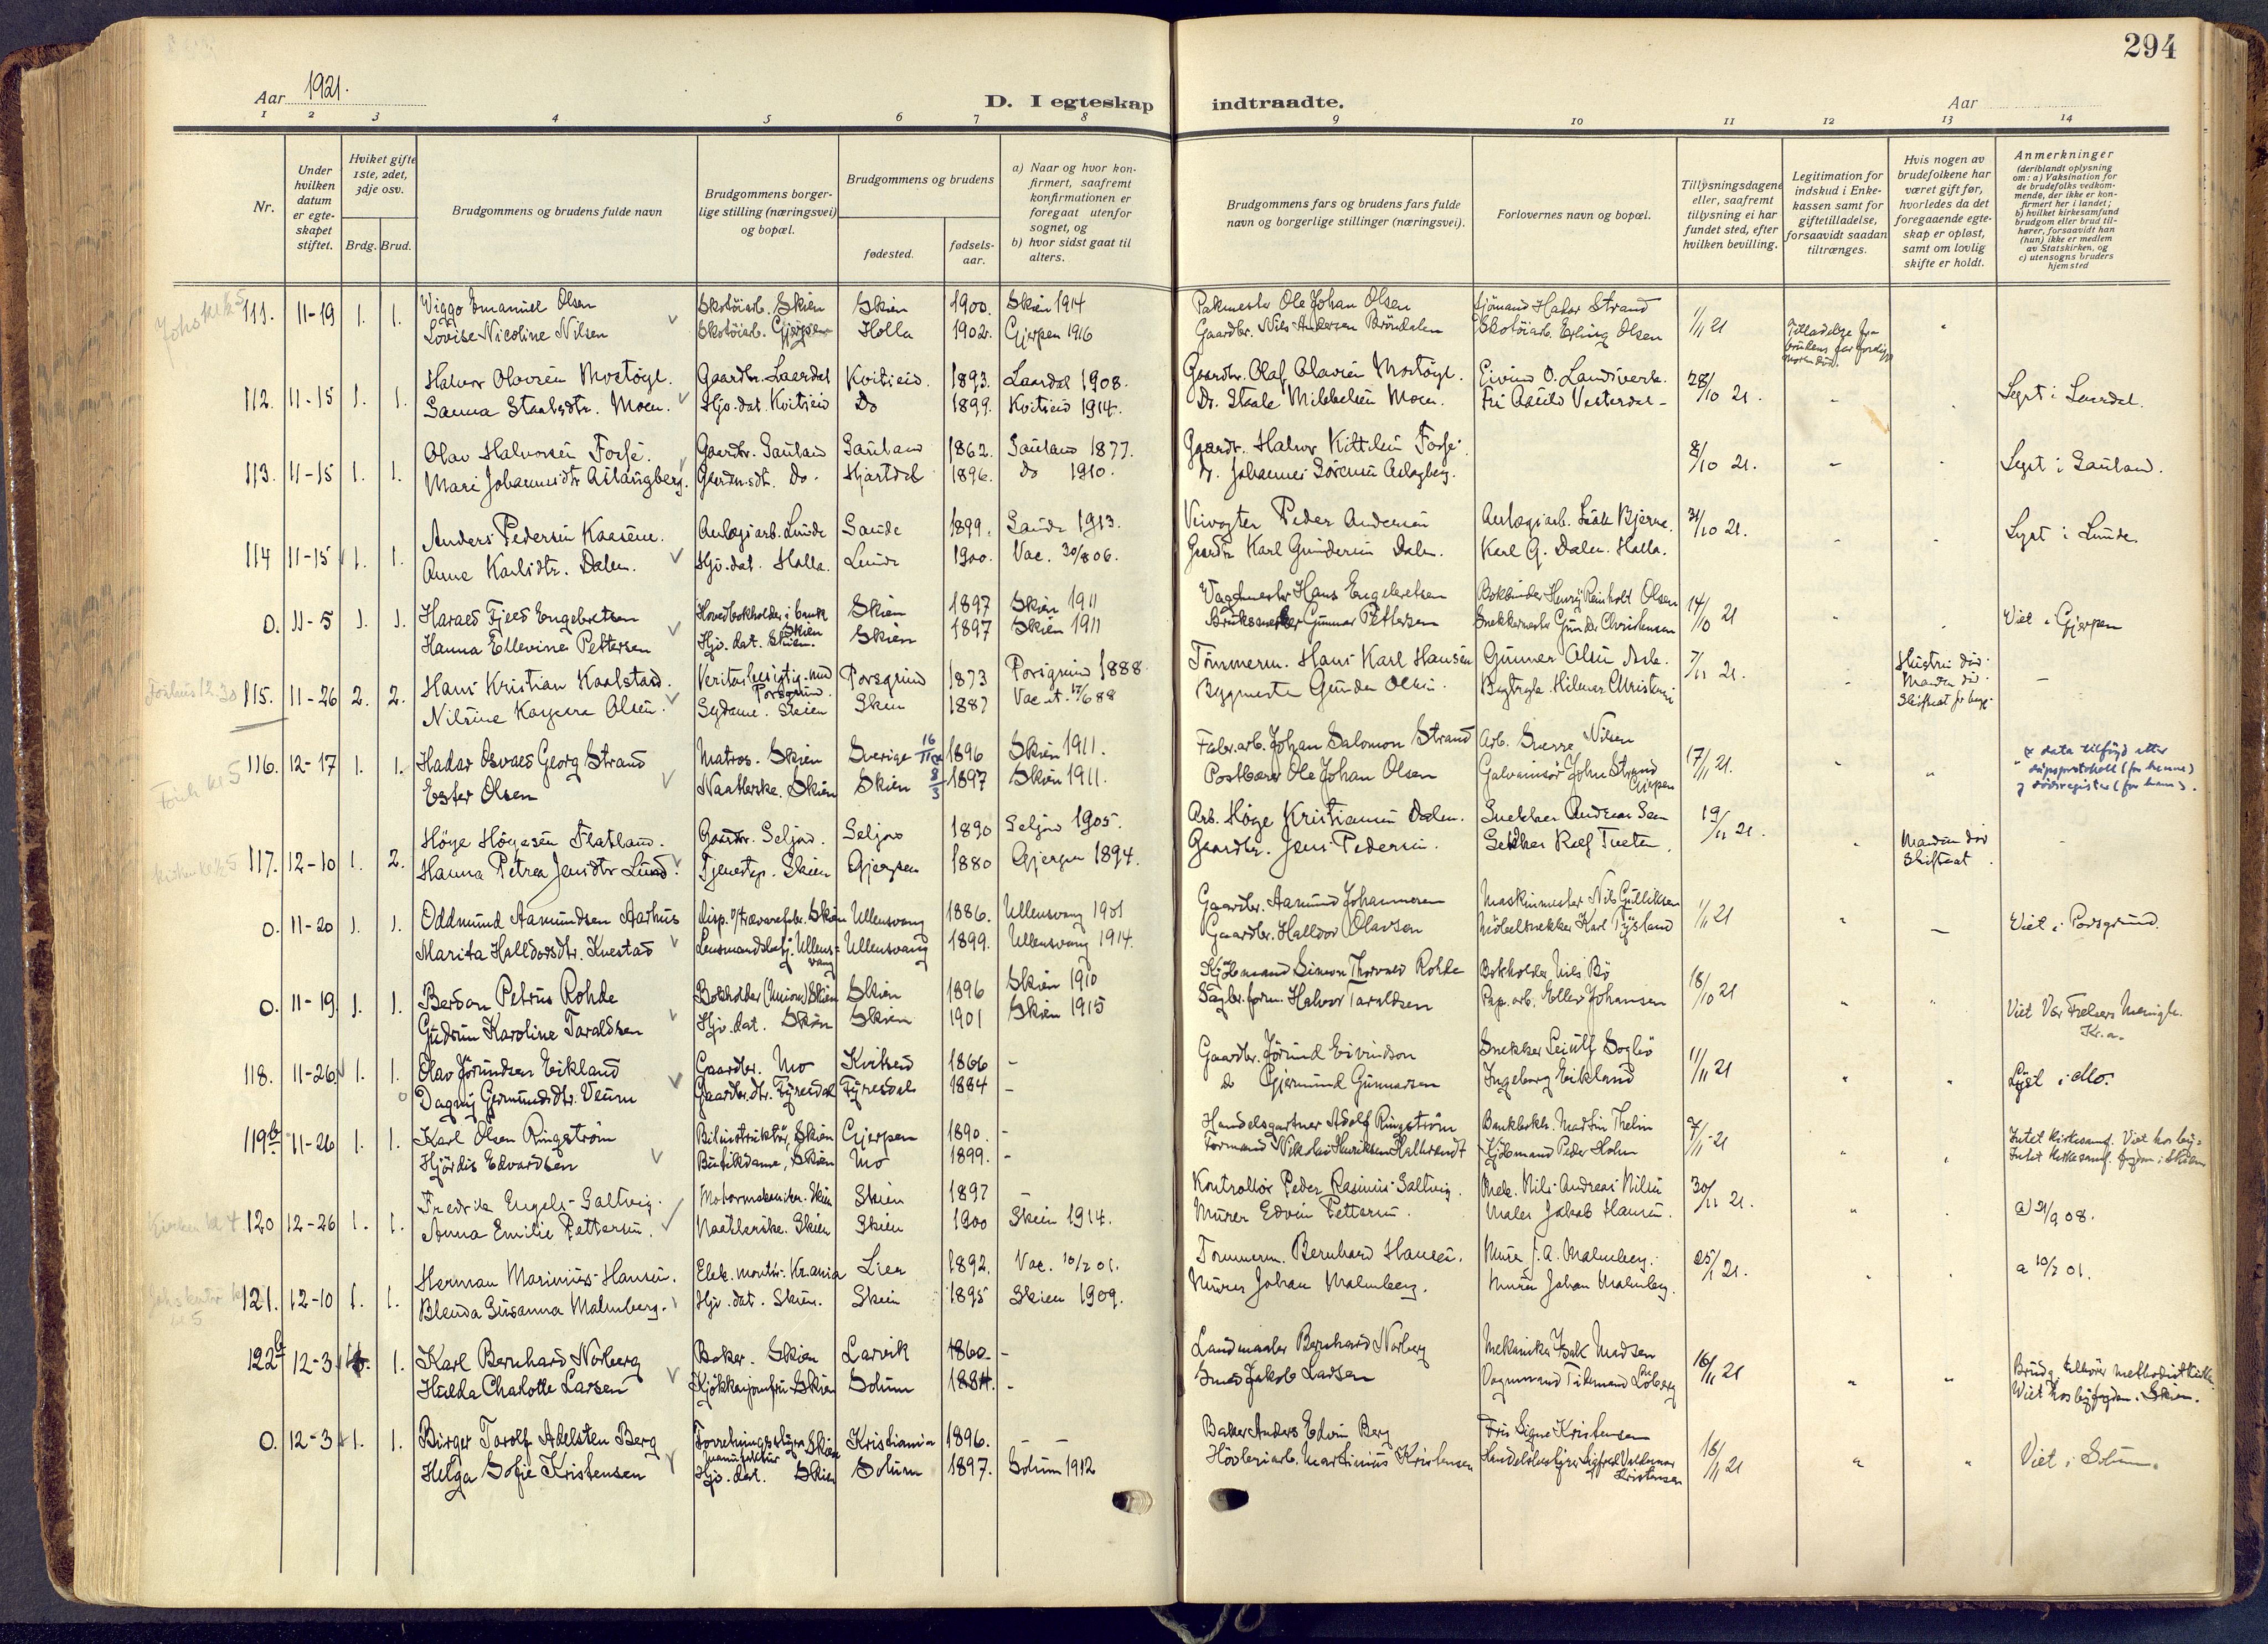 294
Aar 1921.
D. I egteskap indtraadte.
Aar
1 2 3 4 5 6 7 8 9 10 11 12 13 14
Nr.
Under hvilken datum er egteskapet stiftet.
Hviket gifte 1ste, 2det, 3dje osv.
Brdg. Brud.
Brudgommens og brudens fulde navn
Brudgommens borgerlige stilling (næringsvei) og bopæl.
Brudgommens og brudens
fødested.
fødselsaar.
a) Naar og hvor konfirmert, saafremt konfirmationen er foregaat utenfor sognet, og
b) hvor sidst gaat til alters.
Brudgommens fars og brudens fars fulde navn og borgerlige stillinger (næringsvei).
Forlovernes navn og bopæl.
Tillysningsdagene eller, saafremt tillysning ei har fundet sted, efter hvilken bevilling.
Legitimation for indskud i Enkekassen samt for giftetilladelse, forsaavidt saadan tiltrænges.
Hvis nogen av brudefolkene har været gift før, hvorledes da det foregaaende egteskap er opløst, samt om lovlig skifte er holdt.
Anmerkninger
(deriblandt oplysning om: a) Vaksination for de brudefolks vedkommende, der ikke er konfirmert her i landet;
b) hvilket kirkesamfund brudgom eller brud tilhører, forsaavidt han (hun) ikke er medlem av Statskirken, og
c) utensogns bruders hjemsted
111. 11-19 1. 1. Viggo Emanuel Olsen Skotøiarb. Skien Skien 1900. Skien 1914 Ole Johan Olsen Sjømand Hadar Strand 1/11 21
Lovise Nicoline Nilsen Skotøiarb. Gjerpen Holla 1902. Gjerpen 1916 Gaardbr. Nils Andersen Brøndalen Skotøiarb. Erling Olsen
112. 11-15 1. 1. Halvor Olavsen Gaardbr. Laardal Kvitseid. 1893. Laardal 1908. Gaardbr. Olaf Olavsen Eivind O. Landsverk. 28/10 21.
Sanna Staalsdtr. Moen. Hjv. dat. Kvitseid Do 1899. Kvitseid 1914. Do. Staale Mikkelsen Moen. Lyst i Laardal.
113. 11-15 1. 1. Olav Halvorsen Gaardbr. Sauland Sauland 1862. Sauland 1877. Gaardbr. Halvor Kittilsen 8/10 21.
Mari Johannesdtr. Do. Hjartdal 1896. do 1910. Do. Johannes Sørensen Lyst i Sauland.
114 11-15 1. 1. Anders Pedersen Kaasene. Anlægsarb. Lunde Saude 1899. Saude 1913. Veivogter Peder Andersen Anlægsarb. 31/10 21.
Anne Karlsdtr. Dalen. Hjv. dat. Holla. Lunde 1900. Vac. 30/8 06. Gaardbr. Karl Gundersen Dalen. Karl G. Dalen. Holla. Lyst i Lunde.
0. 11-5 1. 1. Harald Fjeld Engebretsen Hovedbokholder i bank Skien Skien 1897 Skien 1911 Vagtmester Hans Engebretsen Bokbinder Henry Reinholt Olsen 14/10 21
Hanna Ellevine Pettersen Hjv. dat. Skien. Skien 1897 Skien 1911 Gunnar Pettersen Snekkermester Gunder Christensen Viet i Gjerpen
115. 11-26 2. 2. Hans Kristian Kaalstad. Porsgrund. Porsgrund 1873 Porsgrund 1888 Tømmerm. Hans Karl Hansen Gunnar Olsen 7/11 21. Hustru død.
Olsen. Sydame. Skien Skien 1887 Vac. 17/6 88 Bygmester Gunder Olsen. Manden død.
116. 12-17 1. 1. Hadar Osvald Georg Strand Matros. Skien Sverige 16/11 1896 Skien 1911. Fabr. arb. Johan Salomon Strand Arb. Sverre Nilsen 17/11 21.
Ester Olsen Naatlerske. Skien Skien 8/3 1897 Skien 1911. Postbærer Ole Johan Olsen John Strand Gjerpen
(x data tilføyd etter dåpsprotokoll (for henne) og dødsregister (for ham).
117. 12-10 1. 2. Høye Høyesen Flatland. Gaardbr. Seljord. Seljord 1890 Seljord 1905. Arb. Høye Kristiansen Dalen. Snekker Andreas 19/11 21.
Hanna Petrea Jensdtr. Lund. Tjenestep. Skien Gjerpen 1880 Gjerpen 1894. Gaardbr. Jens Pedersen. Manden død
0. 11-20 1. 1. Oddmund Aamundsen Aarhus Disp. v/trævarefabr. Skien Ullensvang 1886. Ullensvang 1901 Gaardbr. Aamund Johannesen Maskinmester Nils Gulliksen 1/11 21
Marita Halldorsdtr. Kvestad Lensmandsbetj. Ullensvang Ullensvang 1899. Ullensvang 1914. Gaardbr. Halldor Olavsen Møbelsnekker Karl Tysland Viet i Porsgrund.
0. 11-19 1. 1. Berdon Petrus Rohde Bokholder (Union) Skien Skien 1896 Skien 1910 Kjøbmand Simon Thorvald Rohde Bokholder Nils Bø 18/10 21
Gudrun Karoline Taraldsen Hjv. dat. Skien Skien 1901 Skien 1915 Sagbr. form. Halvor Taraldsen Pap. arb. Johansen Viet Vor Frelsers Menigh. Kr.a.
118. 11-26 1. 1. Olav Jørundsen Eikland Gaardbr. Mo Kvitseid 1866 - Gaardbr. Jørund Eivindson Snekker Leiulf Sogbø 11/11 21
Dagny Gjermundsdtr. Veum Gaardbr. dtr. Fyresdal Fyresdal 1884 - do Gjermund Gunnarsen Ingeborg Eikland Lyst i Mo.
119 b 11-26 1. 1. Karl Olsen Ringstrøm Bilinstruktør, Skien Gjerpen 1890. - Handelsgartner Adolf Ringstrøm Martin Thelin 7/11-21
Hjørdis Edvardsen Butikdame, Skien Mo 1899. - Formand Nikolai Henriksen Kjøbmand Peder Holm
Intet kirkesamf. Viet hos byfogden i Skien
120 12-26 1. 1. Fredrik Engels-Saltvig. Motormekaniker. Skien Skien 1897 - Kontrollør Peder Rasmus Saltvig. Mek. Nils Andreas Nilsen 30/11 21.
Anna Emilie Pettersen. Naatlerske. Skien Skien 1900 Skien 1914. Murer Edvin Pettersen. Maler Jakob Hansen.
121. 12-10 1. 1. Herman Marinius Hansen. Elek. montør. Kr.ania Lier 1892. Vac. 10/7 01. Tømmerm. Bernhard Hansen. Murer J. A. Malmberg. 25/11 21.
Blenda Susanna Malmberg. Hjv. dat. Skien. Skien 1895 Skien 1909. Murer Johan Malmberg. Murer Johan Malmberg. a 10/7 01.
122 b 12-3 1. Karl Bernhard Norberg Baker. Skien Larvik 1860 - Landmaaler Bernhard Norberg Mekaniker Isak Madsen 16/11 21
Hulda Charlotte Larsen Kjøkkenjomfru Skien Solum 1884. - Smed Jakob Larsen Vognmand Tidemand Løberg
Brudg. tilhører methodistkirken. Viet hos byfogden i Skien.
0. 12-3 1. 1. Birger Torolf Adelsten Berg Forretningsstyrer Skien Kristiania 1896. - - Baker Anders Edvin Berg Frk Signe Kristensen 16/11 21
Helga Sofie Kristensen Hjv. dat. Skien Solum 1897. Solum 1912 Høvleriarb. Martinius Kristensen Handelsbestyrer Sigfred Valdemar Kristensen Viet i Solum.